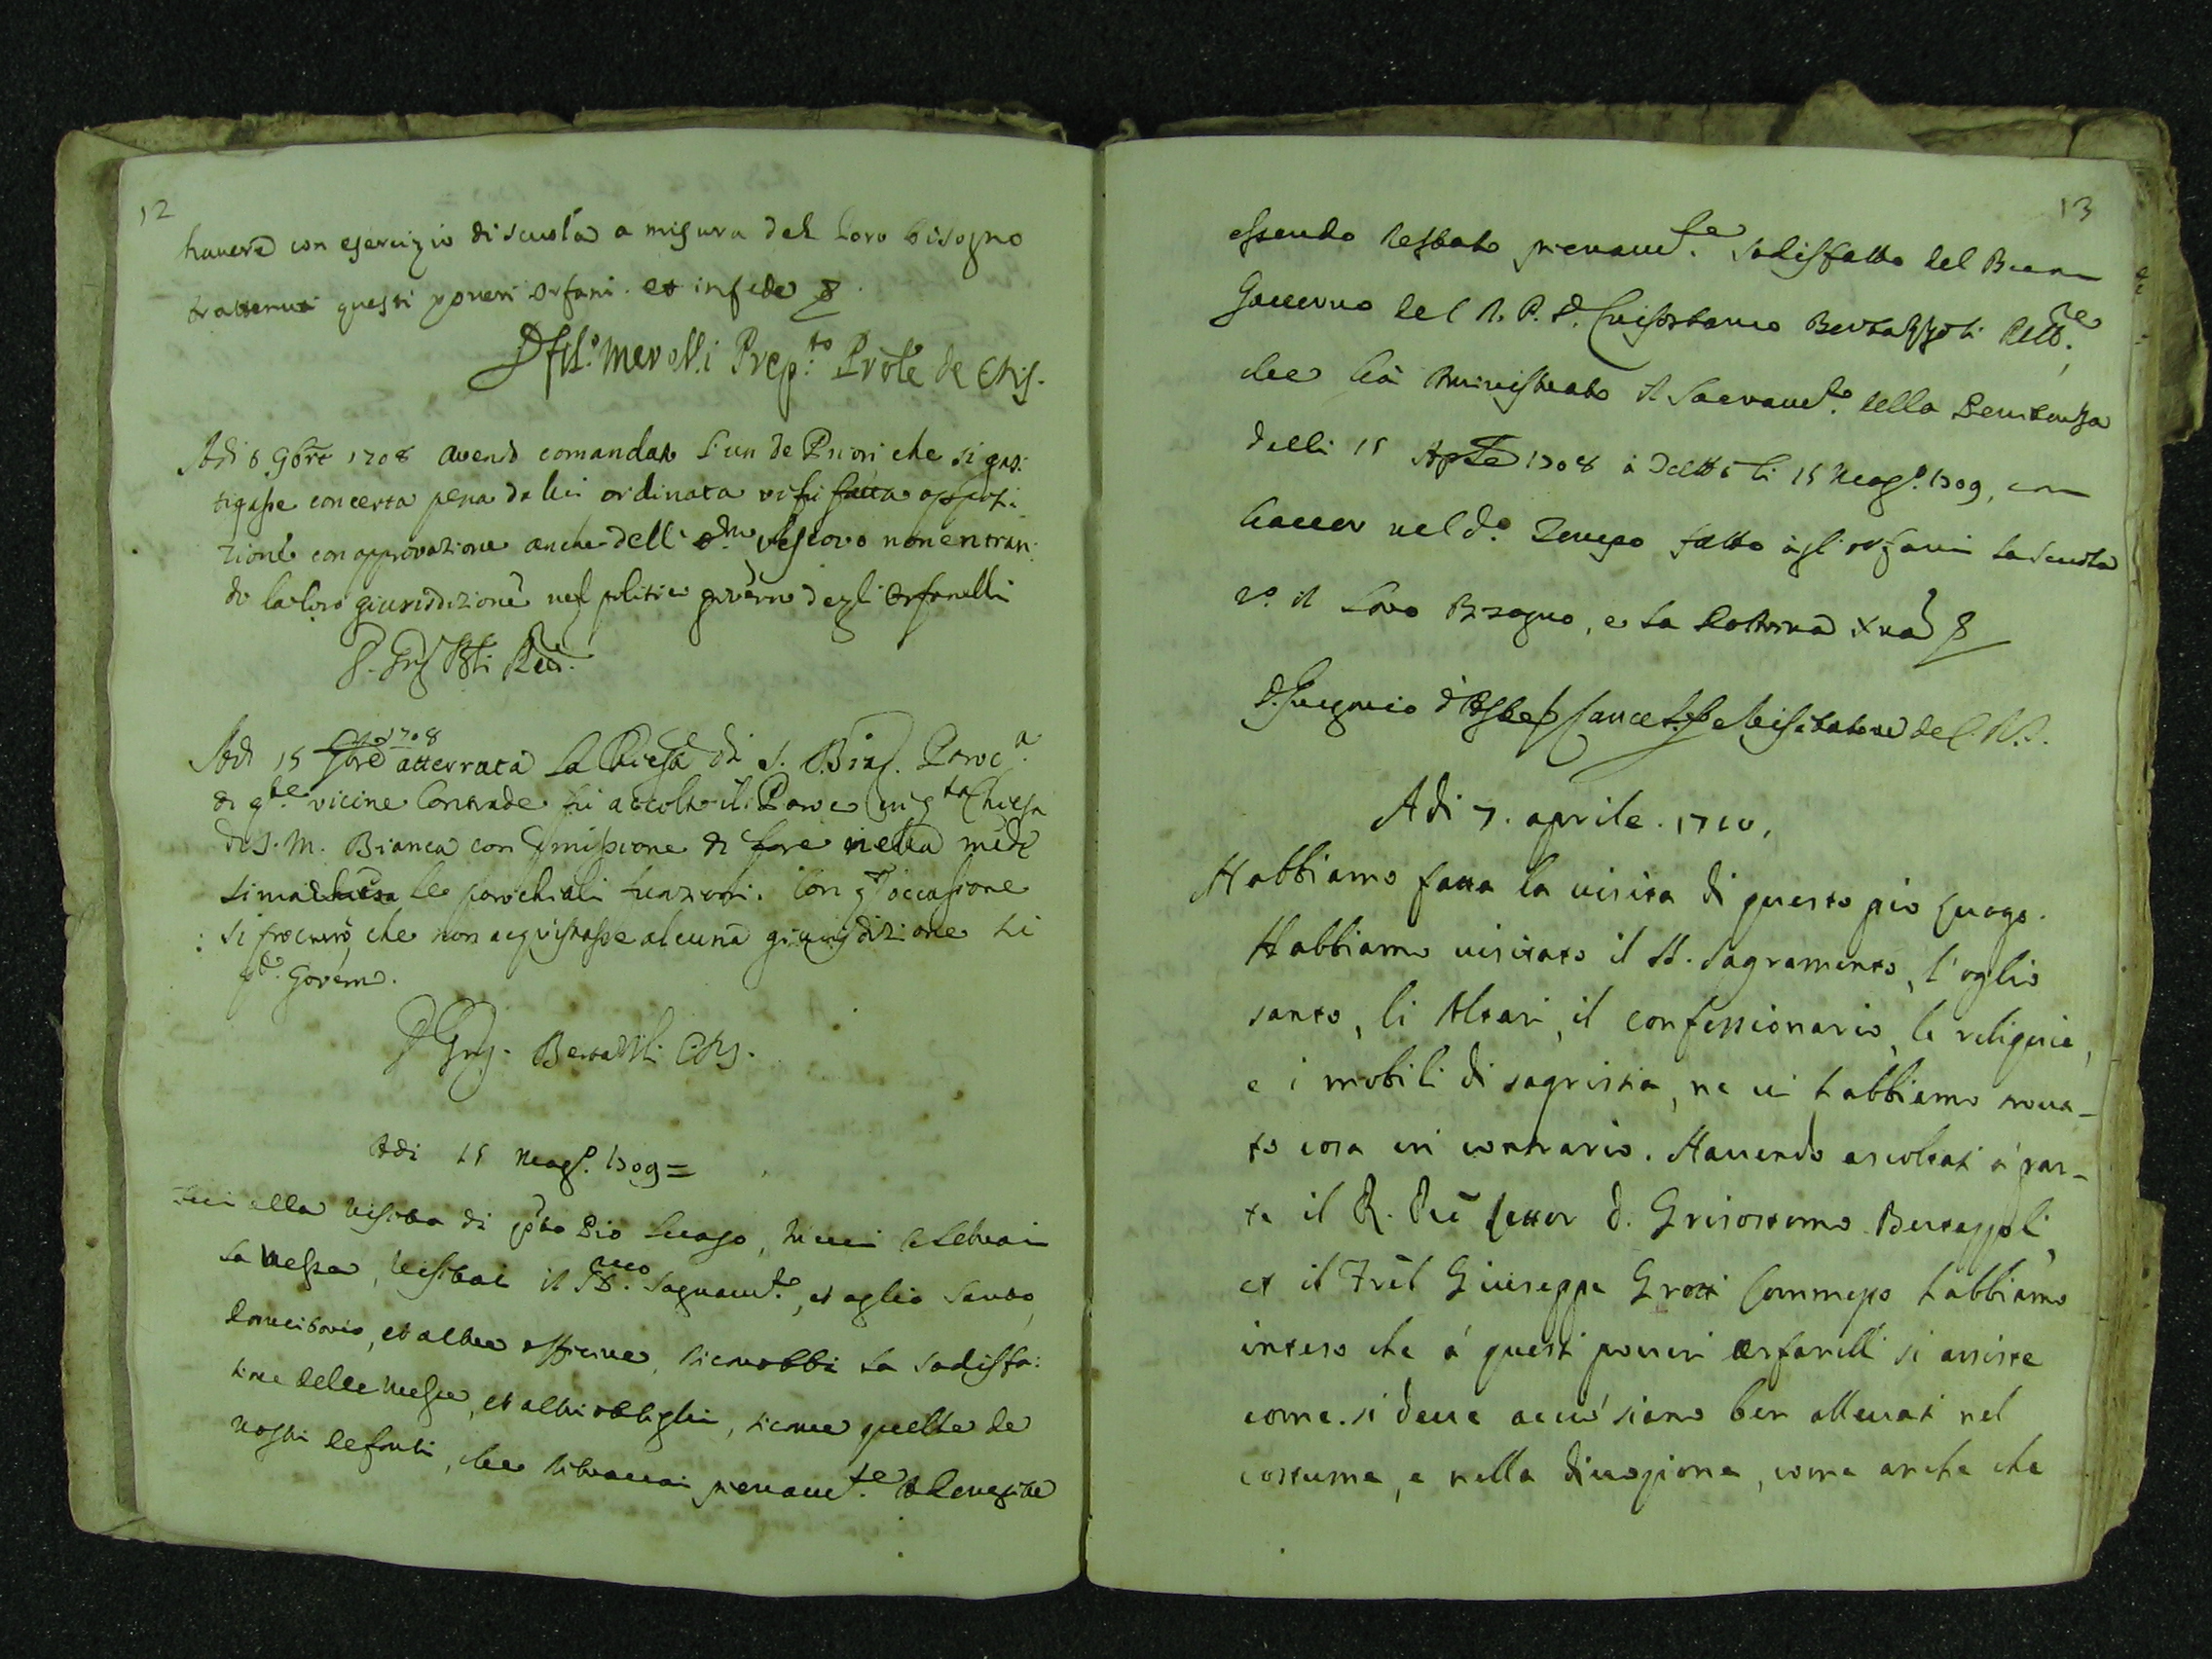 12
havere con esercizio di scuola a misura del loro bisogno
trattenuti questi poveri orfani et in fede
Merelli Prep.to Prōle de CRS.
Adi 6 9bre 1708 avendo comandato l'un de Priori che si gas:
tigasse con certa pena da lui ordinata vi fu fatta opposi:
zione con approvazione anche dell' Vescovo non entran:
do la loro giurisdizione nel politico governo degli Orfanelli
Adi 15 1708 atterrata la Chiesa di S. Biag. Paroc.a
di q.te vicine Contrade fu accolto il Paroco in q.ta Chiesa
di S. M. Bianca con pmissione di fare nella mede
sima chiesa le parochiali funzioni. Con q.ta occasione
si procurò che non acquistasse alcuna giurisdizione di
q.to Governo.
Bertazzoli CRS.
Adi 15 Mag.o 1709 =
Fui alla visita di q.to Pio Luogo, in cui celebrai
la Messa, visitai il SS.mo Sagram.to, et oglio Santo,
Dormitorio, et altre officine, riconobbi la sodisfa:
tione delle Messe, et altri oblighi, sicome quelle de
nostri defonti, che ritrovai pienam.te adempite
13
essendo restato pienam.te sodisfatto del Buon
Governo del M. R. P. D. Crisostomo Bertazzoli Rett.re
che hà ministrato il Sacram.to della Penitenza
dalli 15 Aple 1708 à detto li 15 Mag.o 1709, con
haver nel d.o Tempo fatto àgl'orfani la scuola
p. il loro Bisogno, e la Dottrina Xna
D. Girgnio d'Aste Cancel. e Visitatore del
Adi 7. aprile. 1710.
Habbiamo fatta la visita di questo pio luogo.
Habbiamo visitato il SS. Sagramento, l'oglio
santo, li Altari, il confessionario, le reliquie,
e i mobili di sagristia, ne vi habbiamo trova-
to cosa in contrario. Havendo ascoltati à par-
te il R. Pre Rettor D. Grisostomo Bertazzoli,
et il Frēl Giuseppe Grotti Commesso habbiamo
inteso che à questi poveri orfanelli si assiste
come si deve acciò siano ben allevati nel
costume, e nella divozione, come anche che